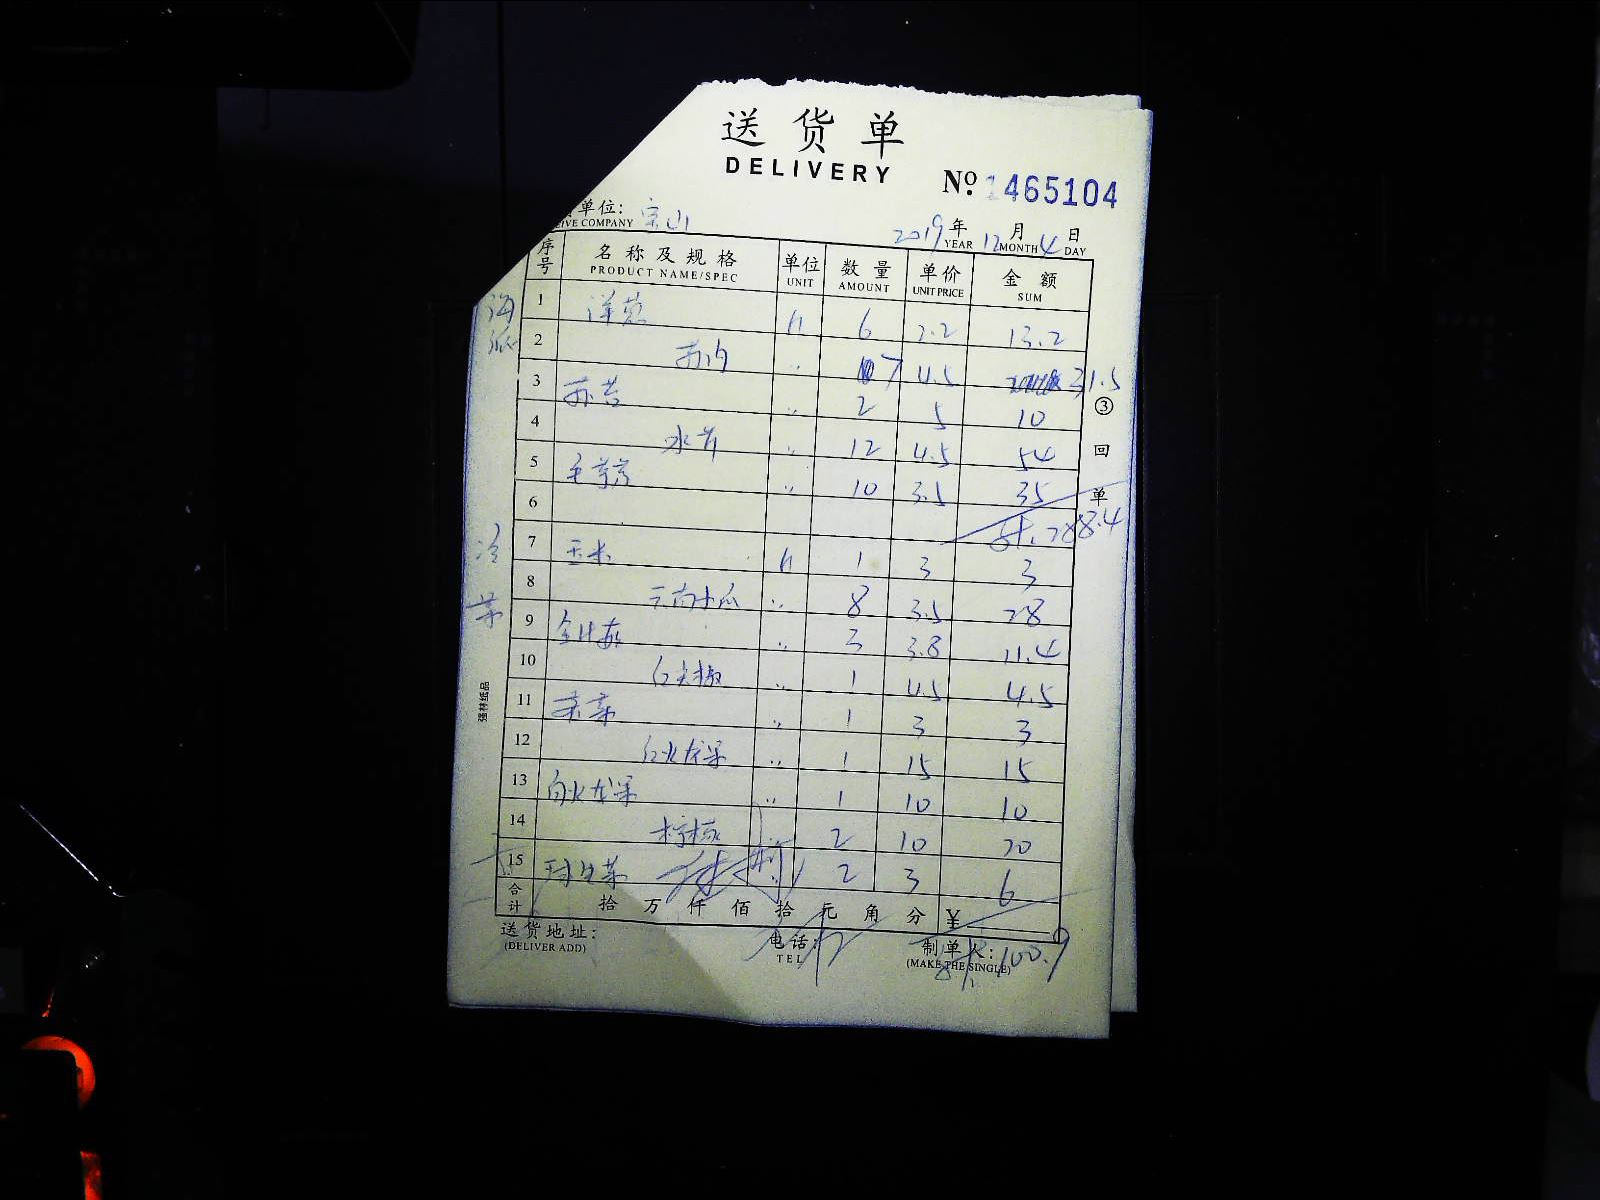 送货单
DELIVERY
№ 1465104
单位: 宝山
IVE COMPANY
2019年12月4日
YEAR MONTH DAY
序号 名称及规格 单位 数量 单价 金额
PRODUCT NAME/SPEC UNIT AMOUNT UNIT PRICE SUM
1 洋葱 斤 6 2.2 13.2
2 〃 7 4.5 31.5
3 〃 2 5 10
4 水芹 〃 12 4.5 54
5 〃 10 3.5 35
6 计:288.4
7 玉米 斤 1 3 3
8 〃 8 3.5 28
9 〃 3 3.8 11.4
10 红尖椒 〃 1 4.5 4.5
11 〃 1 3 3
12 红火龙果 〃 1 15 15
13 白火龙果 〃 1 10 10
14 柠檬 〃 2 10 20
15 球生菜 2 3 6
合计 拾 万 仟 佰 拾 元 角 分 ¥
送货地址: 电话: 制单人:
(DELIVER ADD) TEL (MAKE THE SINGLE)
计:100.9
③回单
强林纸品